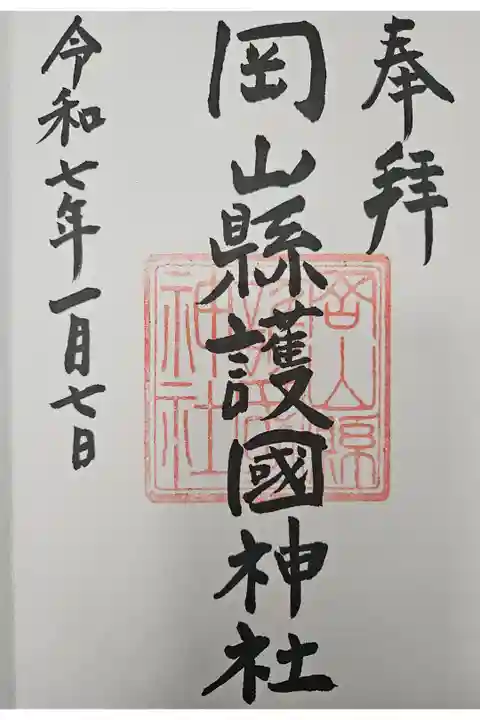 奉拜
岡山縣護國神社
岡山縣
護國
神社
令和七年一月七日